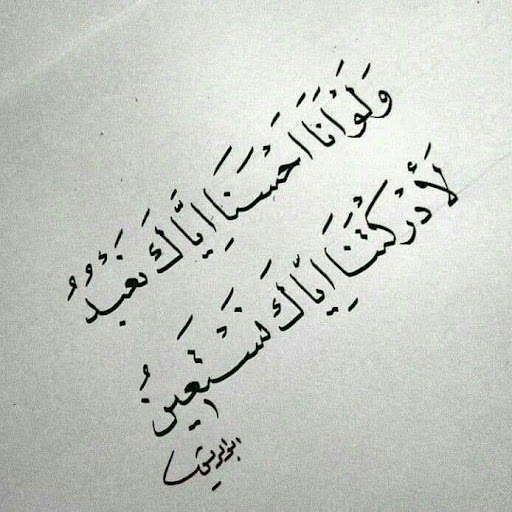 وَلَوْ أَنَّنَا أَحْسَنَّا إِيَّاكَ نَعْبُدُ
لَأَدْرَكَتْنَا إِيَّاكَ نَسْتَعِينُ